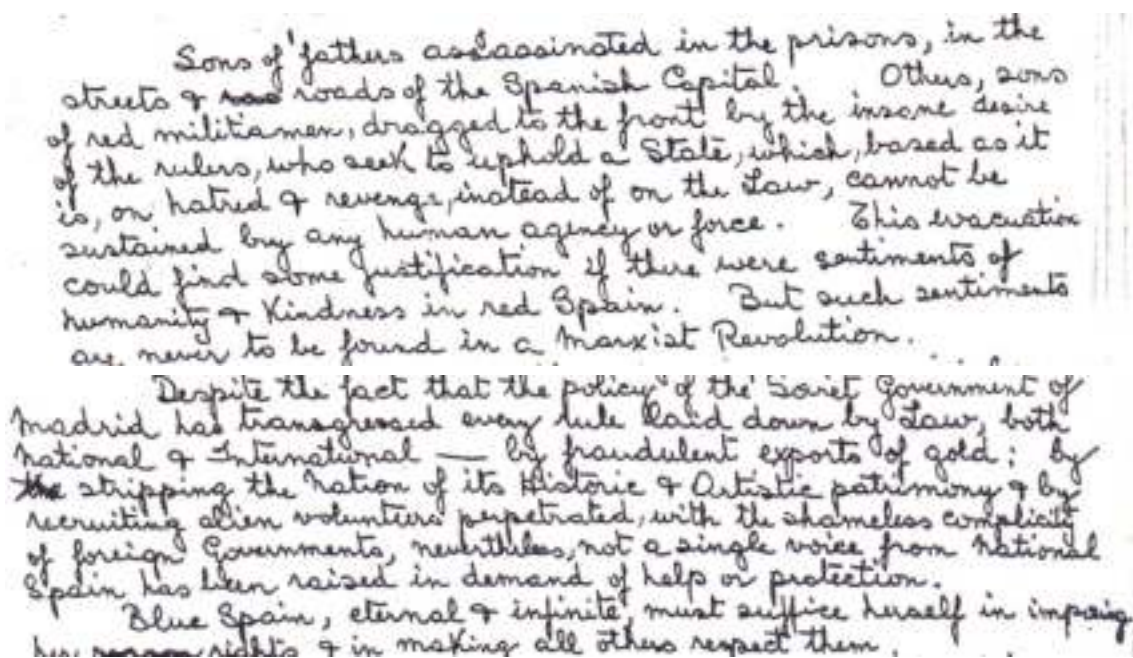 Sons of fathers assassinated in the prisons, in the
streets & roads of the Spanish Capital. Others, sons
of red militiamen, dragged to the front by the insane desire
of the rulers, who seek to uphold a State, which, based as it
is, on hatred & revenge, instead of on the Law, cannot be
sustained by any human agency or force. This evacuation
could find some justification if there were sentiments of
humanity & Kindness in red Spain. But such sentiments
are never to be found in a Marxist Revolution.
Despite the fact that the policy of the Soviet Government of
Madrid has transgressed every rule laid down by Law, both
National & International — by fraudulent exports of gold; by
stripping the Nation of its Historic & Artistic patrimony & by
recruiting alien volunteers perpetrated, with the shameless complicity
of foreign Governments, nevertheless, not a single voice from National
Spain has been raised in demand of help or protection.
Blue Spain, eternal & infinite, must suffice herself in imposing
her rights & in making all others respect them.